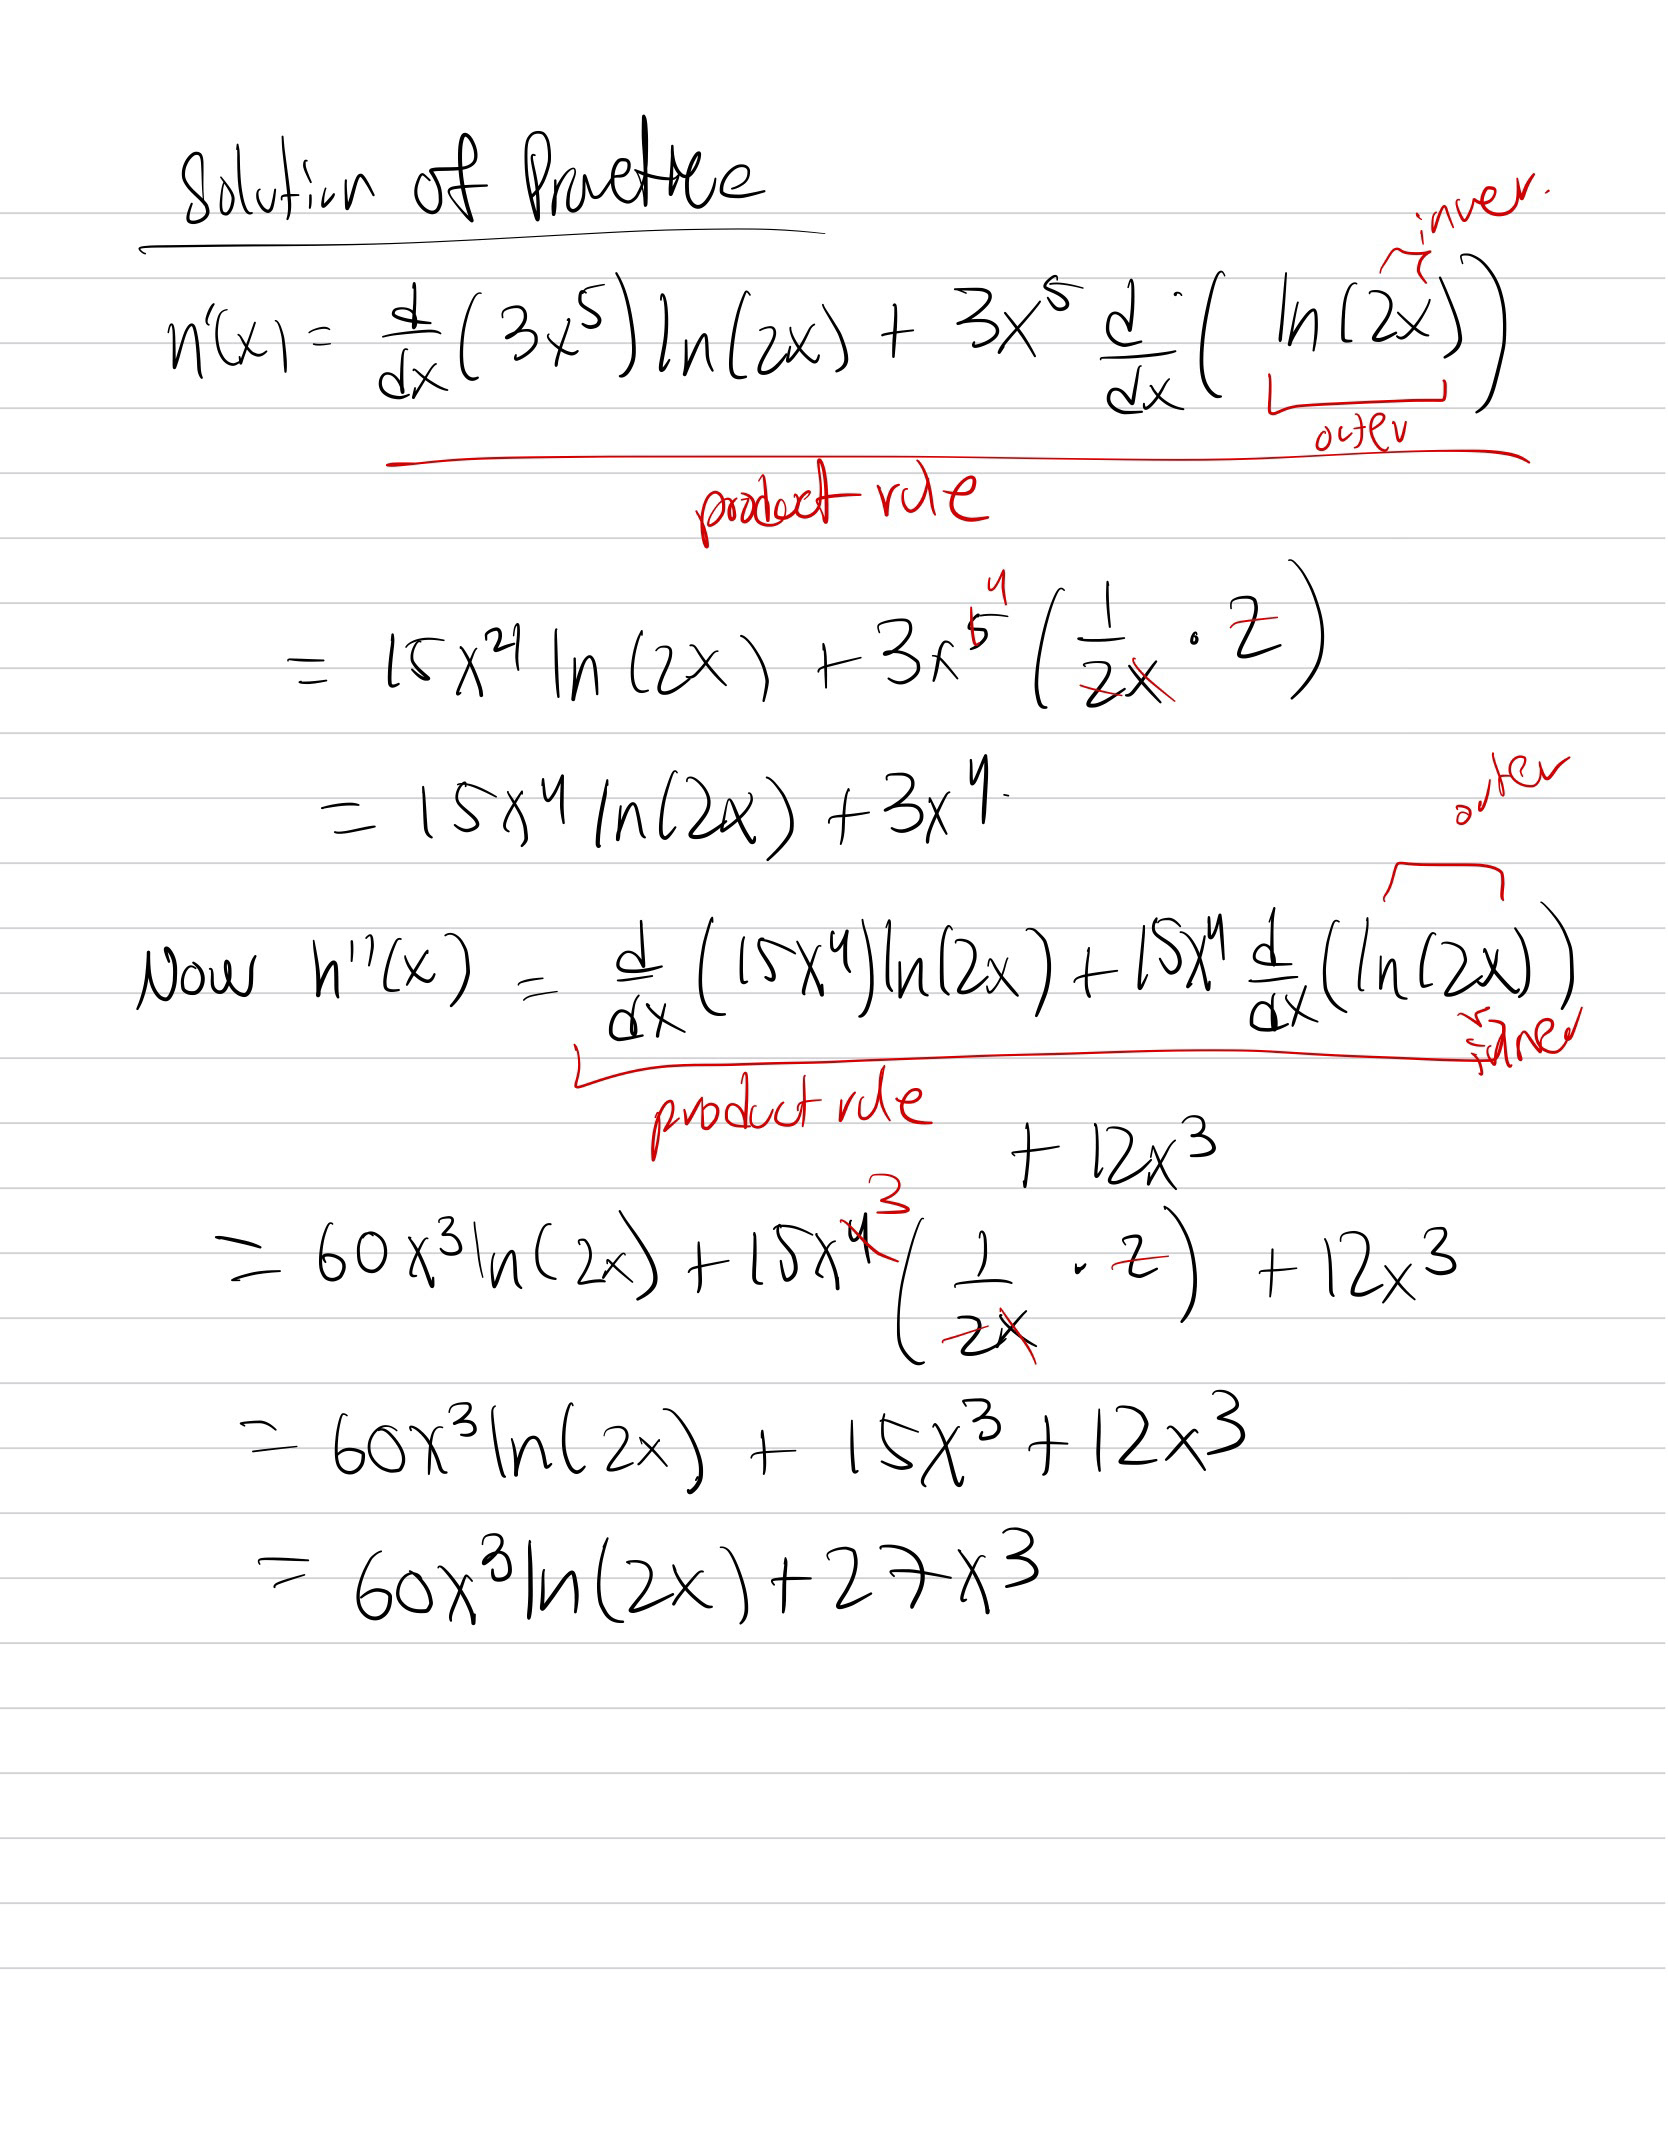 Solution of Practice
inner.
h'(x) = d/dx (3x^5) ln(2x) + 3x^5 d/dx (ln(2x))
outer
product rule
4
= 15x^4 ln(2x) + 3x^5 (1/2x · 2)
= 15x^4 ln(2x) + 3x^4.
outer
Now h''(x) = d/dx (15x^4) ln(2x) + 15x^4 d/dx (ln(2x))
inner
product rule
+ 12x^3
3
= 60x^3 ln(2x) + 15x^4 (1/2x · 2) + 12x^3
= 60x^3 ln(2x) + 15x^3 + 12x^3
= 60x^3 ln(2x) + 27x^3